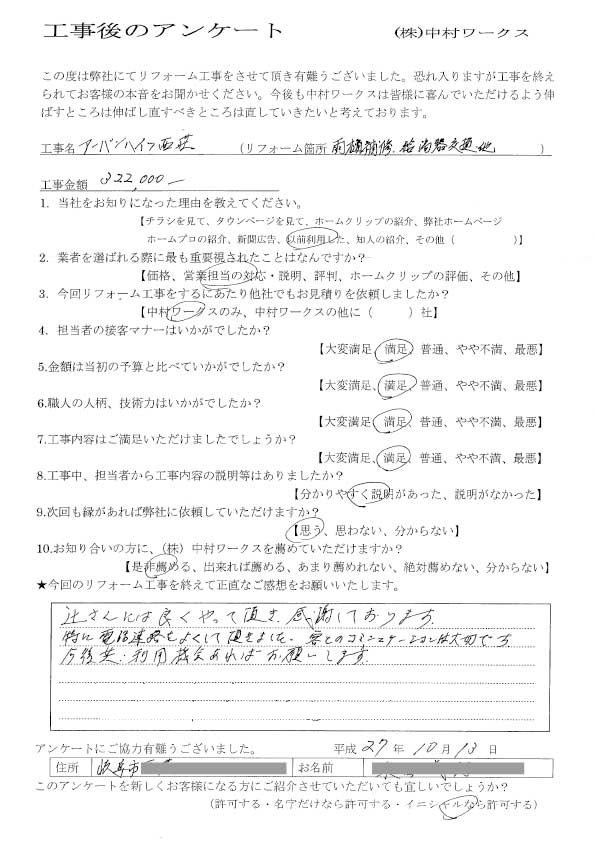 工事後のアンケート (株)中村ワークス
この度は弊社にてリフォーム工事をさせて頂き有難うございました。恐れ入りますが工事を終え
られてお客様の本音をお聞かせください。今後も中村ワークスは皆様に喜んでいただけるよう伸
ばすところは伸ばし直すべきところは直していきたいと考えております。
工事名 アーバンハイツ西荘 (リフォーム箇所 雨樋補修、給湯器交換他 )
工事金額 322,000ー
1. 当社をお知りになった理由を教えてください。
【チラシを見て、タウンページを見て、ホームクリップの紹介、弊社ホームページ
ホームプロの紹介、新聞広告、以前利用した、知人の紹介、その他（ )】
2. 業者を選ばれる際に最も重要視されたことはなんですか？
【価格、営業担当の対応・説明、評判、ホームクリップの評価、その他】
3. 今回リフォーム工事をするにあたり他社でもお見積りを依頼しましたか？
【中村ワークスのみ、中村ワークスの他に（ ）社】
4. 担当者の接客マナーはいかがでしたか？
【大変満足、満足、普通、やや不満、最悪】
5.金額は当初の予算と比べていかがでしたか？
【大変満足、満足、普通、やや不満、最悪】
6.職人の人柄、技術力はいかがでしたか？
【大変満足、満足、普通、やや不満、最悪】
7.工事内容はご満足いただけましたでしょうか？
【大変満足、満足、普通、やや不満、最悪】
8.工事中、担当者から工事内容の説明等はありましたか？
【分かりやすく説明があった、説明がなかった】
9.次回も縁があれば弊社に依頼していただけますか？
【思う、思わない、分からない】
10.お知り合いの方に、(株）中村ワークスを薦めていただけますか？
【是非薦める、出来れば薦める、あまり薦めれない、絶対薦めない、分からない】
★今回のリフォーム工事を終えて正直なご感想をお願いいたします。
辻さんには良くやって頂き、感謝しております。
特に電話連絡をよくして頂きました。客とのコミュニケーションは大切です
今後共、利用機会あればお願いします。
アンケートにご協力有難うございました。 平成 27 年 10 月 13 日
住所 お名前
このアンケートを新しくお客様になる方にご紹介させていただいても宜しいでしょうか？
（許可する・名字だけなら許可する・イニシャルなら許可する）